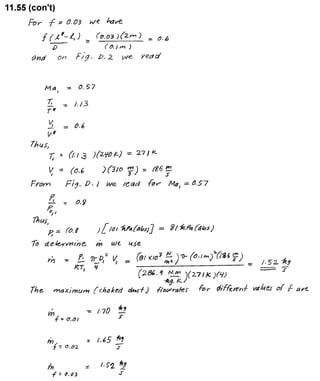 11.55 (con't)
For f = 0.03 we have
f(ℓ*-ℓ₁) / D = (0.03)(2m) / (0.1m) = 0.6
and on Fig. D.2 we read
Ma₁ = 0.57
T₁ / T* = 1.13
V₁ / V* = 0.6
Thus,
T₁ = (1.13)(240K) = 271K
V₁ = (0.6)(310 m/s) = 186 m/s
From Fig. D.1 we read for Ma₁ = 0.57
p₁ / p₀,₁ = 0.8
Thus,
p₁ = (0.8)[101 kPa(abs)] = 81 kPa(abs)
To determine ṁ we use
ṁ = p₁/RT₁ π/4 D₁² V₁ = (81 x10³ N/m²) π (0.1m)²(186 m/s) / (286.9 N·m/kg·K)(271K)(4) = 1.52 kg/s
The maximum (choked duct) flowrates for different values of f are
ṁ f=0.01 = 1.70 kg/s
ṁ f=0.02 = 1.65 kg/s
ṁ f=0.03 = 1.52 kg/s